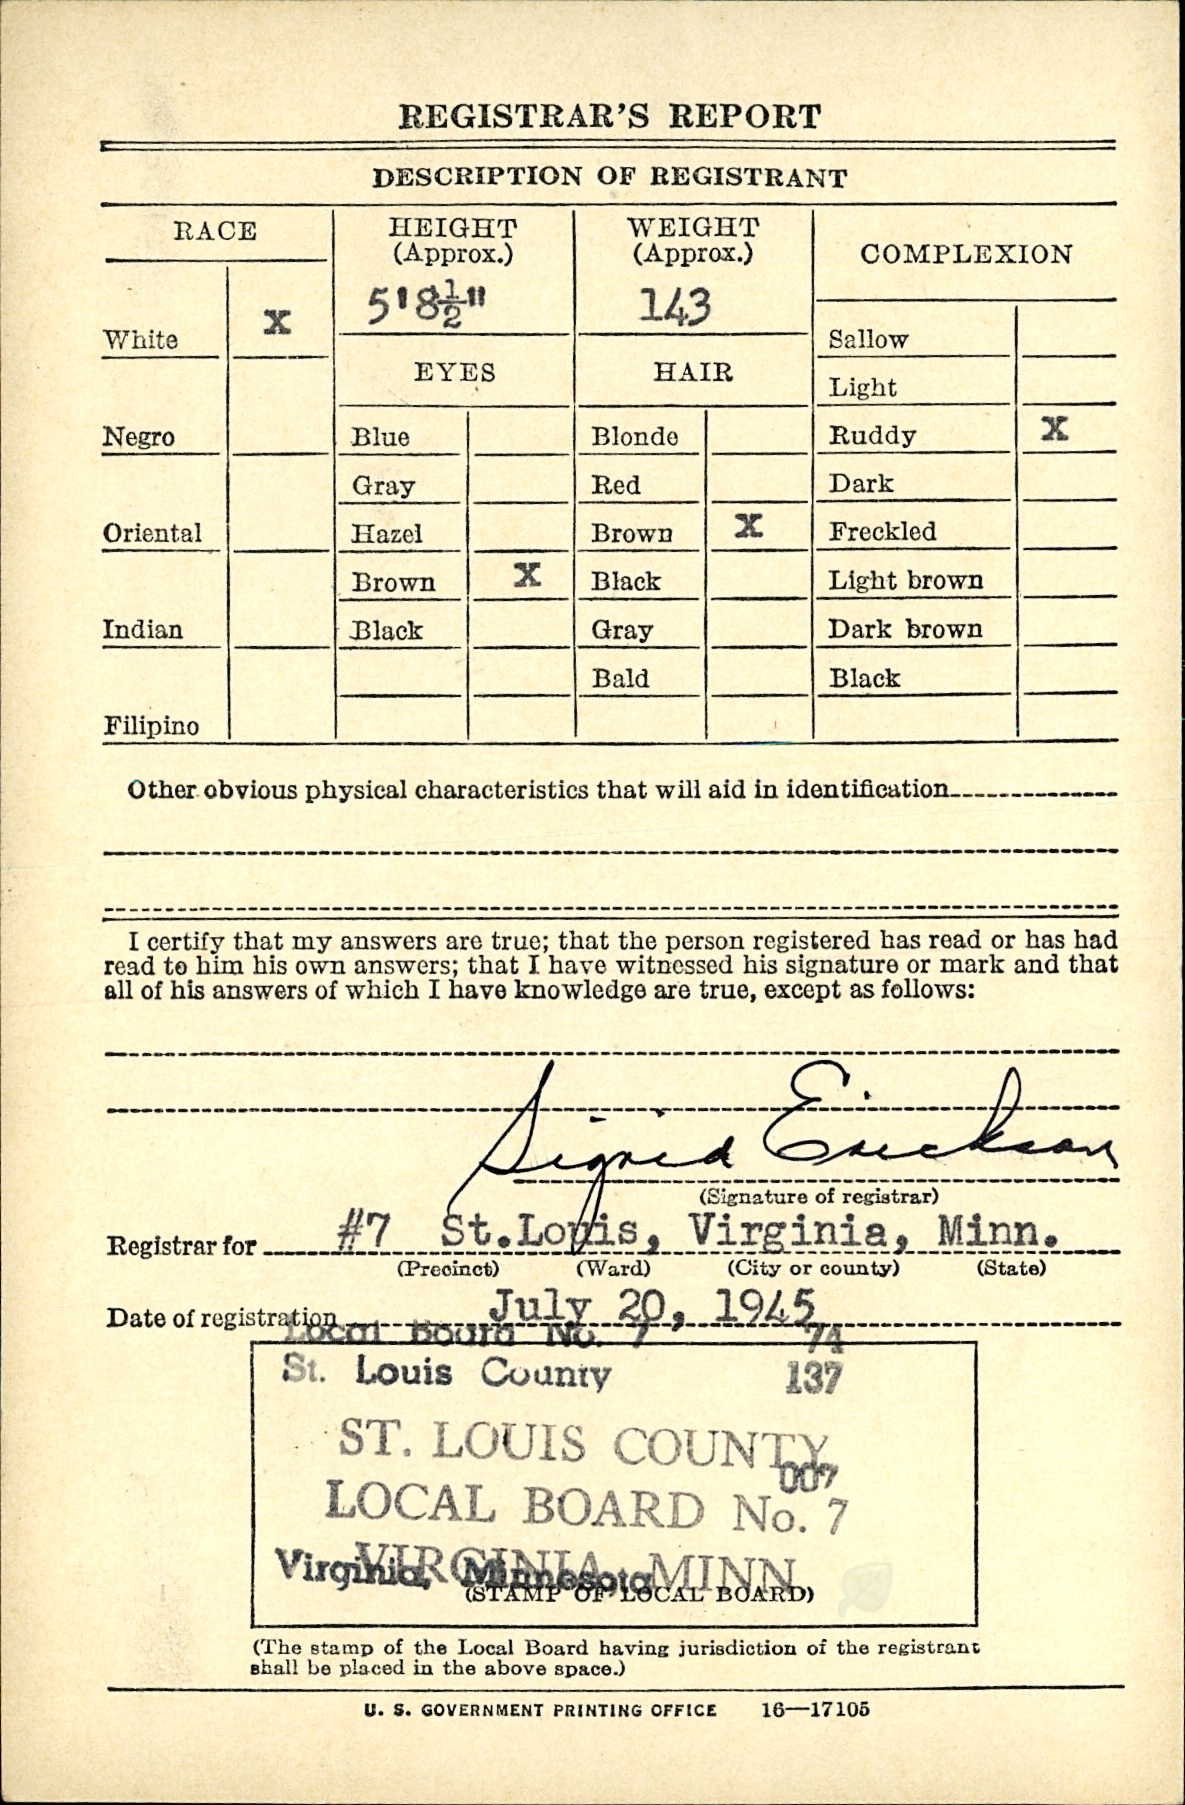 REGISTRAR'S REPORT
DESCRIPTION OF REGISTRANT
RACE
HEIGHT
(Approx.)
WEIGHT
(Approx.)
COMPLEXION
5'8½"
143
White X
EYES
HAIR
Sallow
Light
Negro
Blue
Blonde
Ruddy X
Gray
Red
Dark
Oriental
Hazel
Brown X
Freckled
Brown X
Black
Light brown
Indian
Black
Gray
Dark brown
Bald
Black
Filipino
Other obvious physical characteristics that will aid in identification
I certify that my answers are true; that the person registered has read or has had
read to him his own answers; that I have witnessed his signature or mark and that
all of his answers of which I have knowledge are true, except as follows:
Sigrid Erickson
(Signature of registrar)
Registrar for #7 St.Louis, Virginia, Minn.
(Precinct) (Ward) (City or county) (State)
Date of registration July 20, 1945
Local Board No. 7 74
St. Louis County 137
ST. LOUIS COUNTY
007
LOCAL BOARD No. 7
VIRGINIA, MINN.
Virginia, Minnesota
(STAMP OF LOCAL BOARD)
(The stamp of the Local Board having jurisdiction of the registrant
shall be placed in the above space.)
U. S. GOVERNMENT PRINTING OFFICE 16—17105